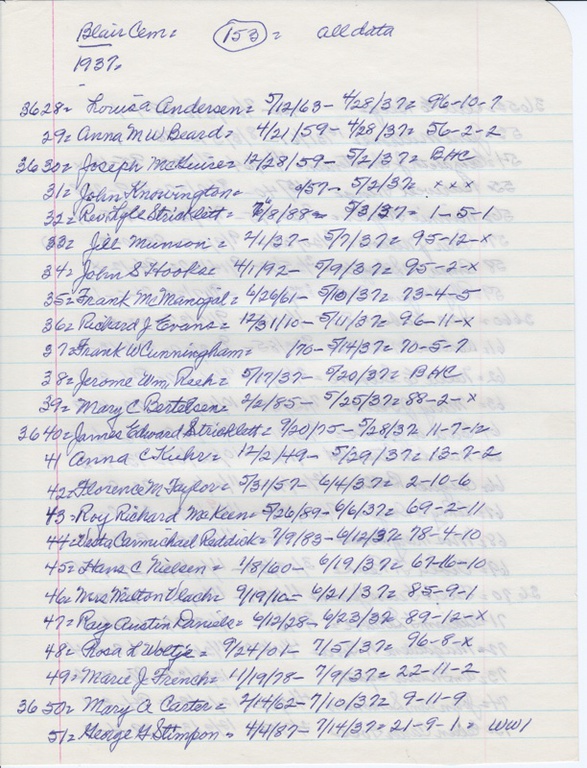 Blair Cem: 153 = all data
1937.
3628 = Louisa Andersen = 5/12/63 - 4/28/37 = 96-10-7
29 = Anna M W Beard = 4/21/59 - 4/28/37 = 56-2-2
3630 = Joseph McGuire = 12/28/59 - 5/2/37 = BHC
31 = John Knowington = /57 - 5/2/37 = x x x
32 = Rev Lyle Stricklett = 8/88 = 5/3/37 = 1-5-1
33 = Jill Munson = 2/1/37 - 5/7/37 = 95-12-x
34 = John S Hooks = 4/1/92 - 5/9/37 = 95-2-x
35 = Frank McManogal = 6/26/61 - 5/10/37 = 73-4-5
36 = Richard J Evans = 12/31/10 - 5/11/37 = 96-11-x
37 = Frank W Cunningham = /70 - 5/14/37 = 70-5-7
38 = Jerome Wm = 5/17/37 - 5/20/37 = BHC
39 = Mary C Bertelsen = 2/2/85 - 5/25/37 = 88-2-x
3640 = James Edward Stricklett = 9/20/75 - 5/28/37 11-7-12
41 Anna C Kuhr = 12/2/49 - 5/29/37 = 13-7-2
42 = Florence M Taylor = 5/31/57 - 6/4/37 = 2-10-6
43 = Roy Richard McKeen = 5/26/89 - 6/6/37 = 69-2-11
44 = Vesta Carmichael Reddick = 7/9/83 - 6/12/37 = 78-4-10
45 = Hans C Nielsen = 1/8/60 - 6/19/37 = 67-16-10
46 = Mrs Milton Vlach = 9/19/10 - 6/21/37 = 85-9-1
47 = Ray Austin Daniels = 6/12/28 - 6/23/37 = 89-12-x
48 = Rosa L = 9/24/01 - 7/5/37 = 96-8-x
49 = Marie J French = 1/19/78 - 7/9/37 = 22-11-2
3650 = Mary A Carter = 2/14/62 - 7/10/37 = 9-11-9
51 = George H Stimpon = 4/4/87 - 7/14/37 = 21-9-1 = WW1